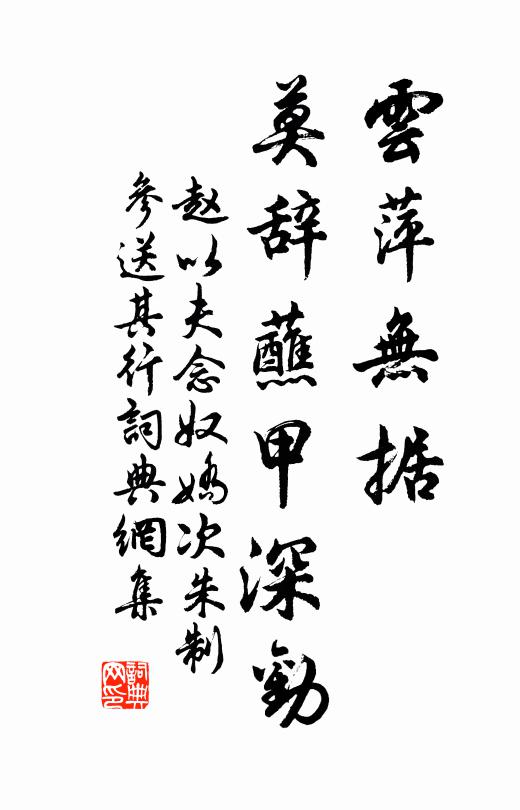 雲萍無据
莫辞蘸甲深勸
赵以夫念奴嬌次朱制
參送其行詞典網集
詞典网印